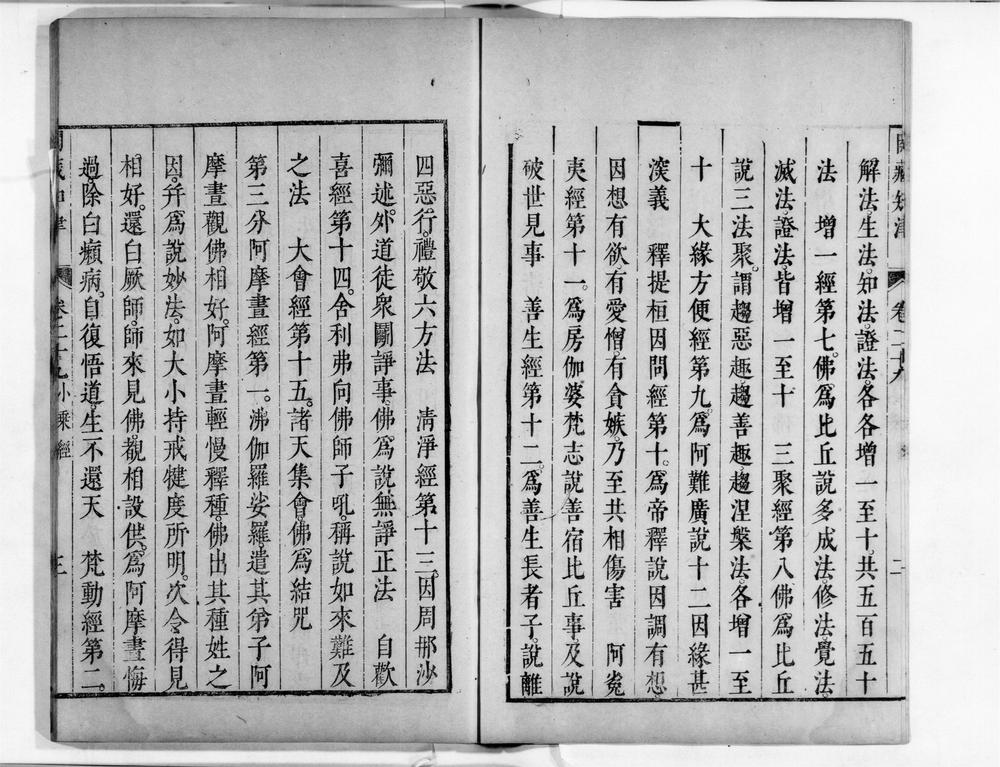 閱藏知津 卷二十九 二
解法生法知法證法各各增一至十共五百五十
法 增一經第七。佛爲比丘說多成法修法覺法。
滅法證法皆增一至十 三聚經第八佛爲比丘
說三法聚。謂趨惡趣趨善趣趨涅槃法。各增一至
十 大緣方便經第九。爲阿難廣說十二因緣甚
深義 釋提桓因問經第十。爲帝釋說因調有想。
因想有欲有愛憎。有貪嫉。乃至共相傷害 阿㝹
夷經第十一。爲房伽婆梵志說善宿比丘事。及說
破世見事 善生經第十二。爲善生長者子。說離
四惡行。禮敬六方法 清淨經第十三。因周那沙
彌述。外道徒衆鬬諍事。佛爲說無諍正法 自歡
喜經第十四。舍利弗向佛師子吼。稱說如來難及
之法 大會經第十五。諸天集會。佛爲結咒
第三分阿摩晝經第一。沸伽羅娑羅。遣其弟子阿
摩晝觀佛相好。阿摩晝輕慢釋種。佛出其種姓之
因。幷爲說妙法。如大小持戒犍度所明。次令得見
相好。還白厥師。師來見佛。覩相設供。爲阿摩晝悔
過。除白癩病。自復悟道。生不還天 梵動經第二。
閱藏知津 卷二十九 小乘經 三